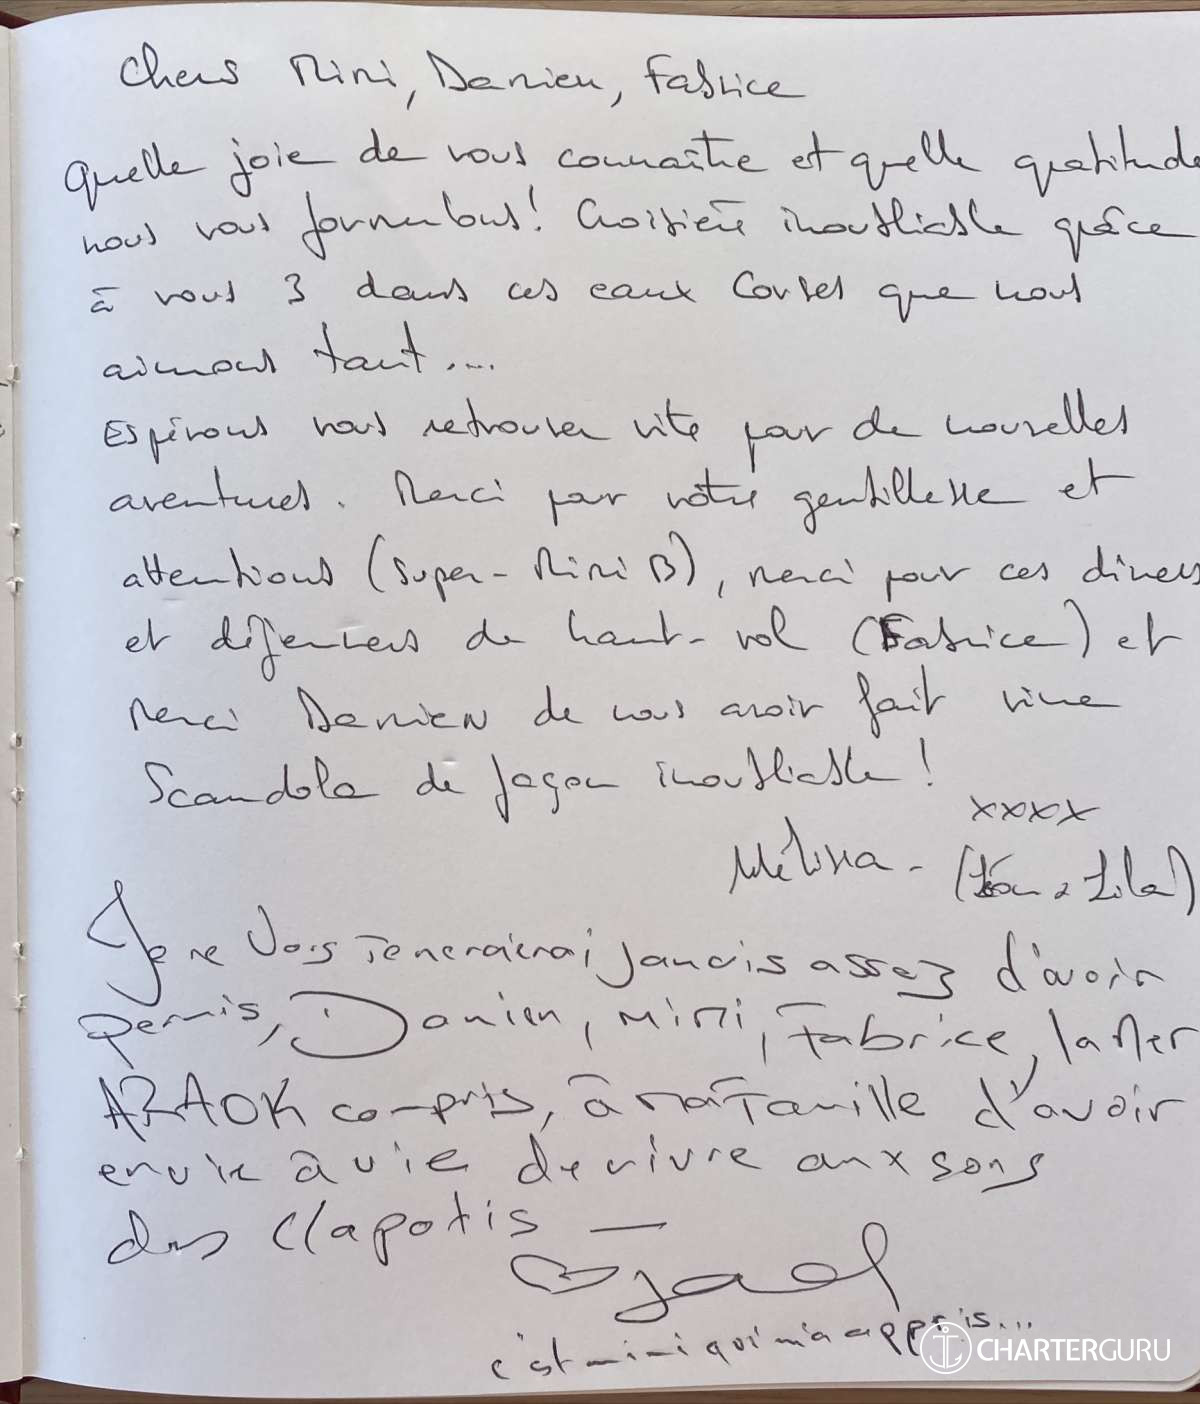 Chers Mimi, Damien, Fabrice
Quelle joie de vous connaître et quelle gratitude
nous vous formulons! Croisière inoubliable grâce
à vous 3 dans ces eaux Corses que nous
aimons tant....
Espérons vous retrouver vite pour de nouvelles
aventures. Merci pour votre gentillesse et
attentions (Super-Mimi B), merci pour ces diners
et déjeuners de haut-vol (Fabrice) et
merci Damien de nous avoir fait vivre
Scandola de façon inoubliable!
xxxx
Mélissa - (Léon & Lila)
Je ne Vous remercierai jamais assez d'avoir
permis, Damien, Mimi, Fabrice, la Mer
ARAOK compris, à ma Famille d'avoir
envie à vie de vivre aux sons
des clapotis —
c'est mimi qui m'a appris...
CHARTERGURU